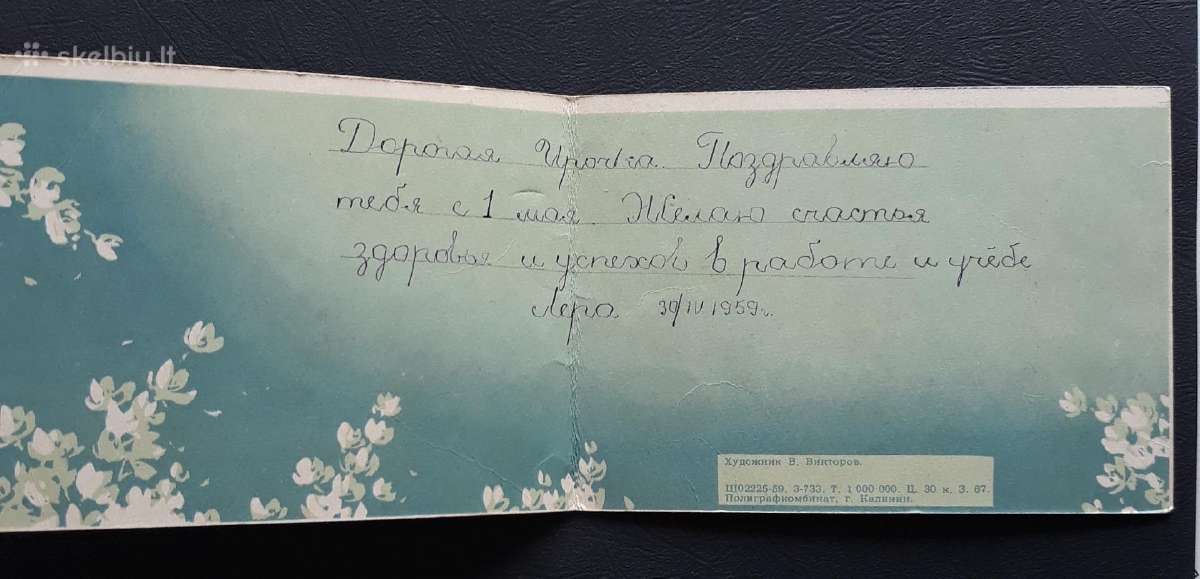 skelbiu.lt
Дорогая Ирочка. Поздравляю
тебя с 1 мая. Желаю счастья
здоровья и успехов в работе и учёбе
Лера 30/IV 1959г.
Художник В. Викторов.
Щ02225-59, З-733. Т. 1 000 000. Ц. 30 к. З. 67.
Полиграфкомбинат, г. Калинин.